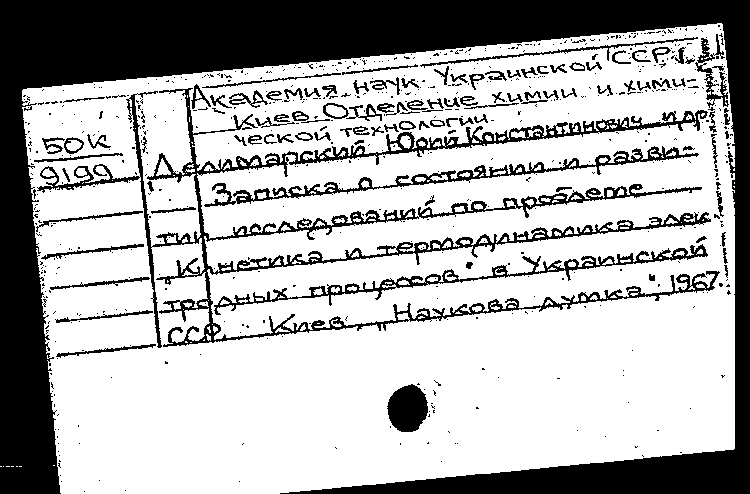 Академия наук Украинской ССР.
Киев. Отделение химии и хими-
ческой технологии.
50К
9199
Делимарский, Юрий Константинович и др
Записка о состоянии и разви-
тии исследований по проблеме
„Кинетика и термодинамика элек-
тродных процессов" в Украинской
ССР. Киев, „Наукова думка", 1967.